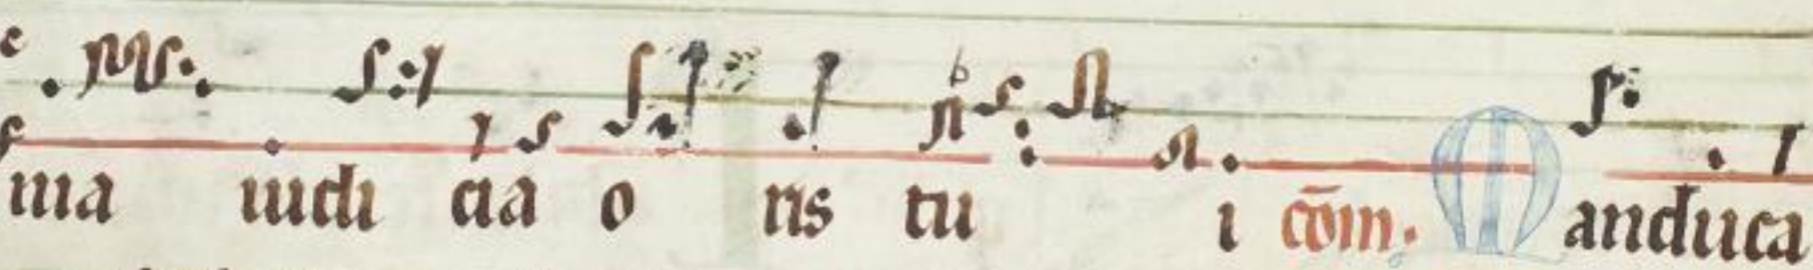 ma iudi cia o ris tu i cōm. Manduca